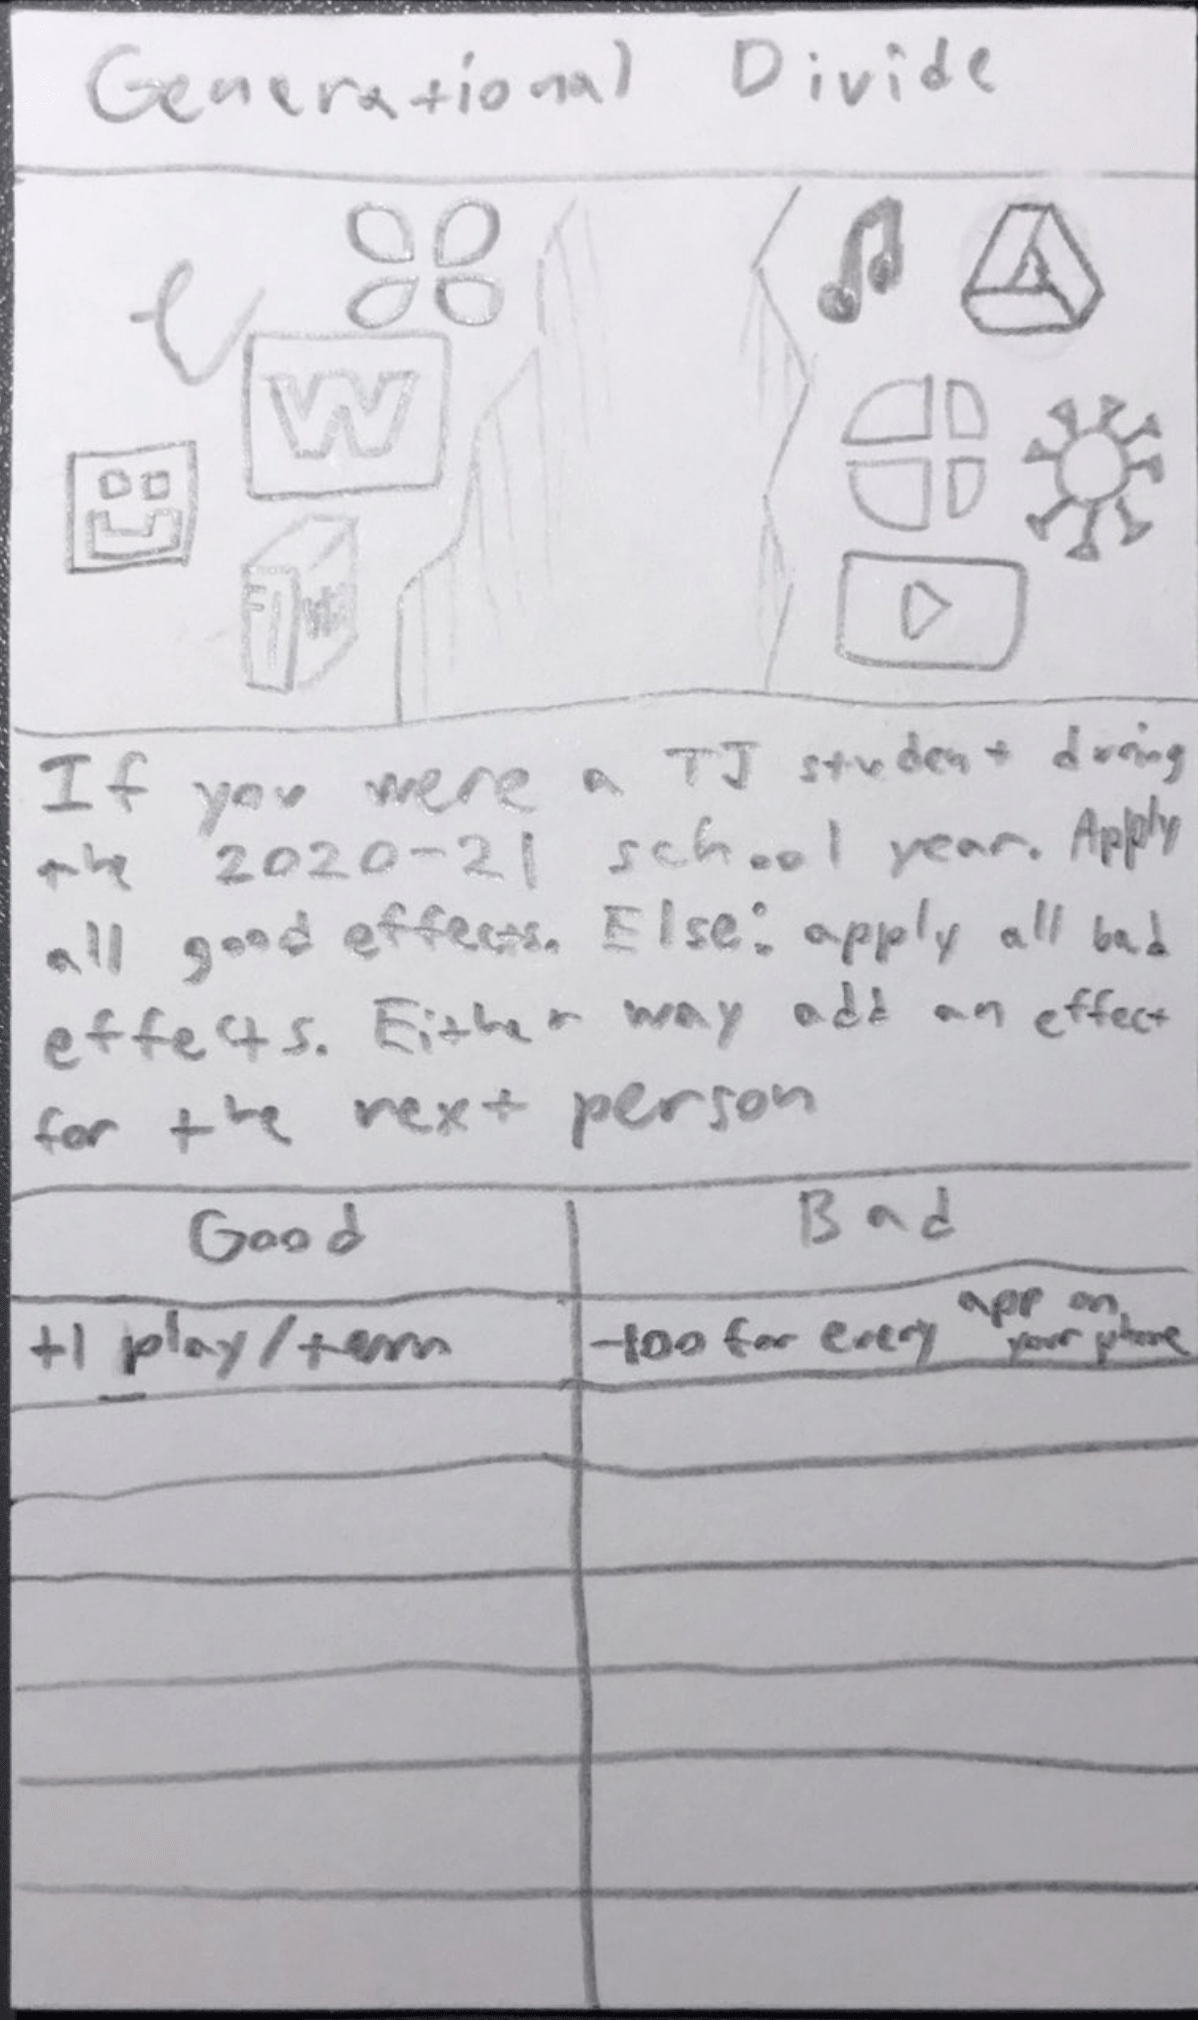 Generational Divide
W
If you were a TJ student during
the 2020-21 school year. Apply
all good effects. Else: apply all bad
effects. Either way add an effect
for the next person
Good
Bad
+1 play/term
-100 for every app on your phone